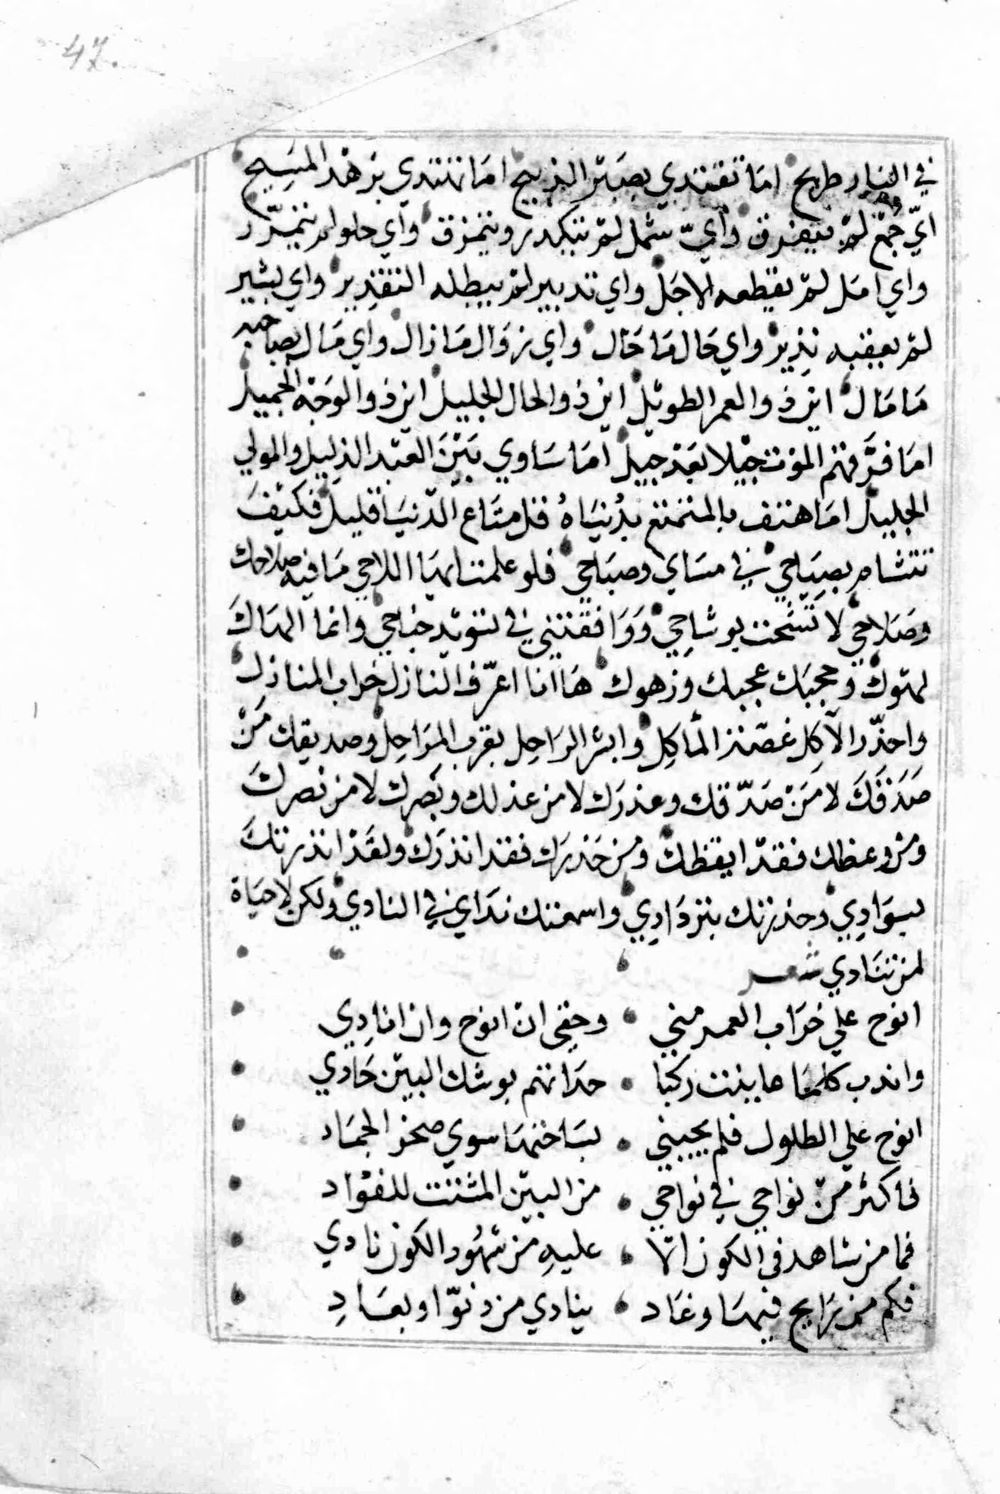 47
في النار طريح اما تقتدي بصبر الذبيح اما تهتدي بزهد المسيح
ايّ جمع لم يتفرق وايّ شمل لم يتكدر ويتمزق واي حلو لم يتمرّر
واي امل لم يقطعه الاجل واي تدبير لم يبطله التقدير واي بشير
لم يعقبه نذير واي حال ما حال واي زوال ما زال واي مال بصاحبه
ما مال اين ذو العمر الطويل اين ذو الحال الجليل اين ذو الوجه الجميل
اما فرّقهم الموت جيلا بعد جيل اما ساوي بين العبد الذليل والمولي
الجليل اما هتف بالمتمتع بدنياه قل متاع الدنيا قليل فكيف
تتشاءم بصياحي في مساي وصباحي فلو علمت ايها اللاحي ما فيه صلاحك
وصلاحي لاتشحت بوشاحي ووافقتني في تسويد جناحي وانما الهاك
لهوك وحجبك عجبك وزهوك ها انا اعرّف النازل خراب المنازل
واحذّر الآكل غصة المآكل وابشر الراحل بقرب المراحل وصديقك من
صدقك لا من صدّقك وعذرك لا من عذلك وبصرك لا من نصرك
ومن وعظك فقد ايقظك ومن حذرك فقد انذرك ولقد انذرتك
بسوادي وحذرتك بتردادي واسمعتك نداي في النادي ولكن لا حياة
لمن تنادي شعر
انوح علي خراب العمر مني وحقي ان انوح وان انادي
واندب كلما عاينت ركبا حدا بهم بوشك البين حادي
انوح علي الطلول فلم يجبني بساحتها سوي صخر الجماد
فاكثر من نواحي في نواحي من البين المشتت للفؤاد
فما من شاهد في الكون الّا عليه من شهود الكون نادي
فكم من رايح فيها وغاد ينادي من دنوّ او بعاد